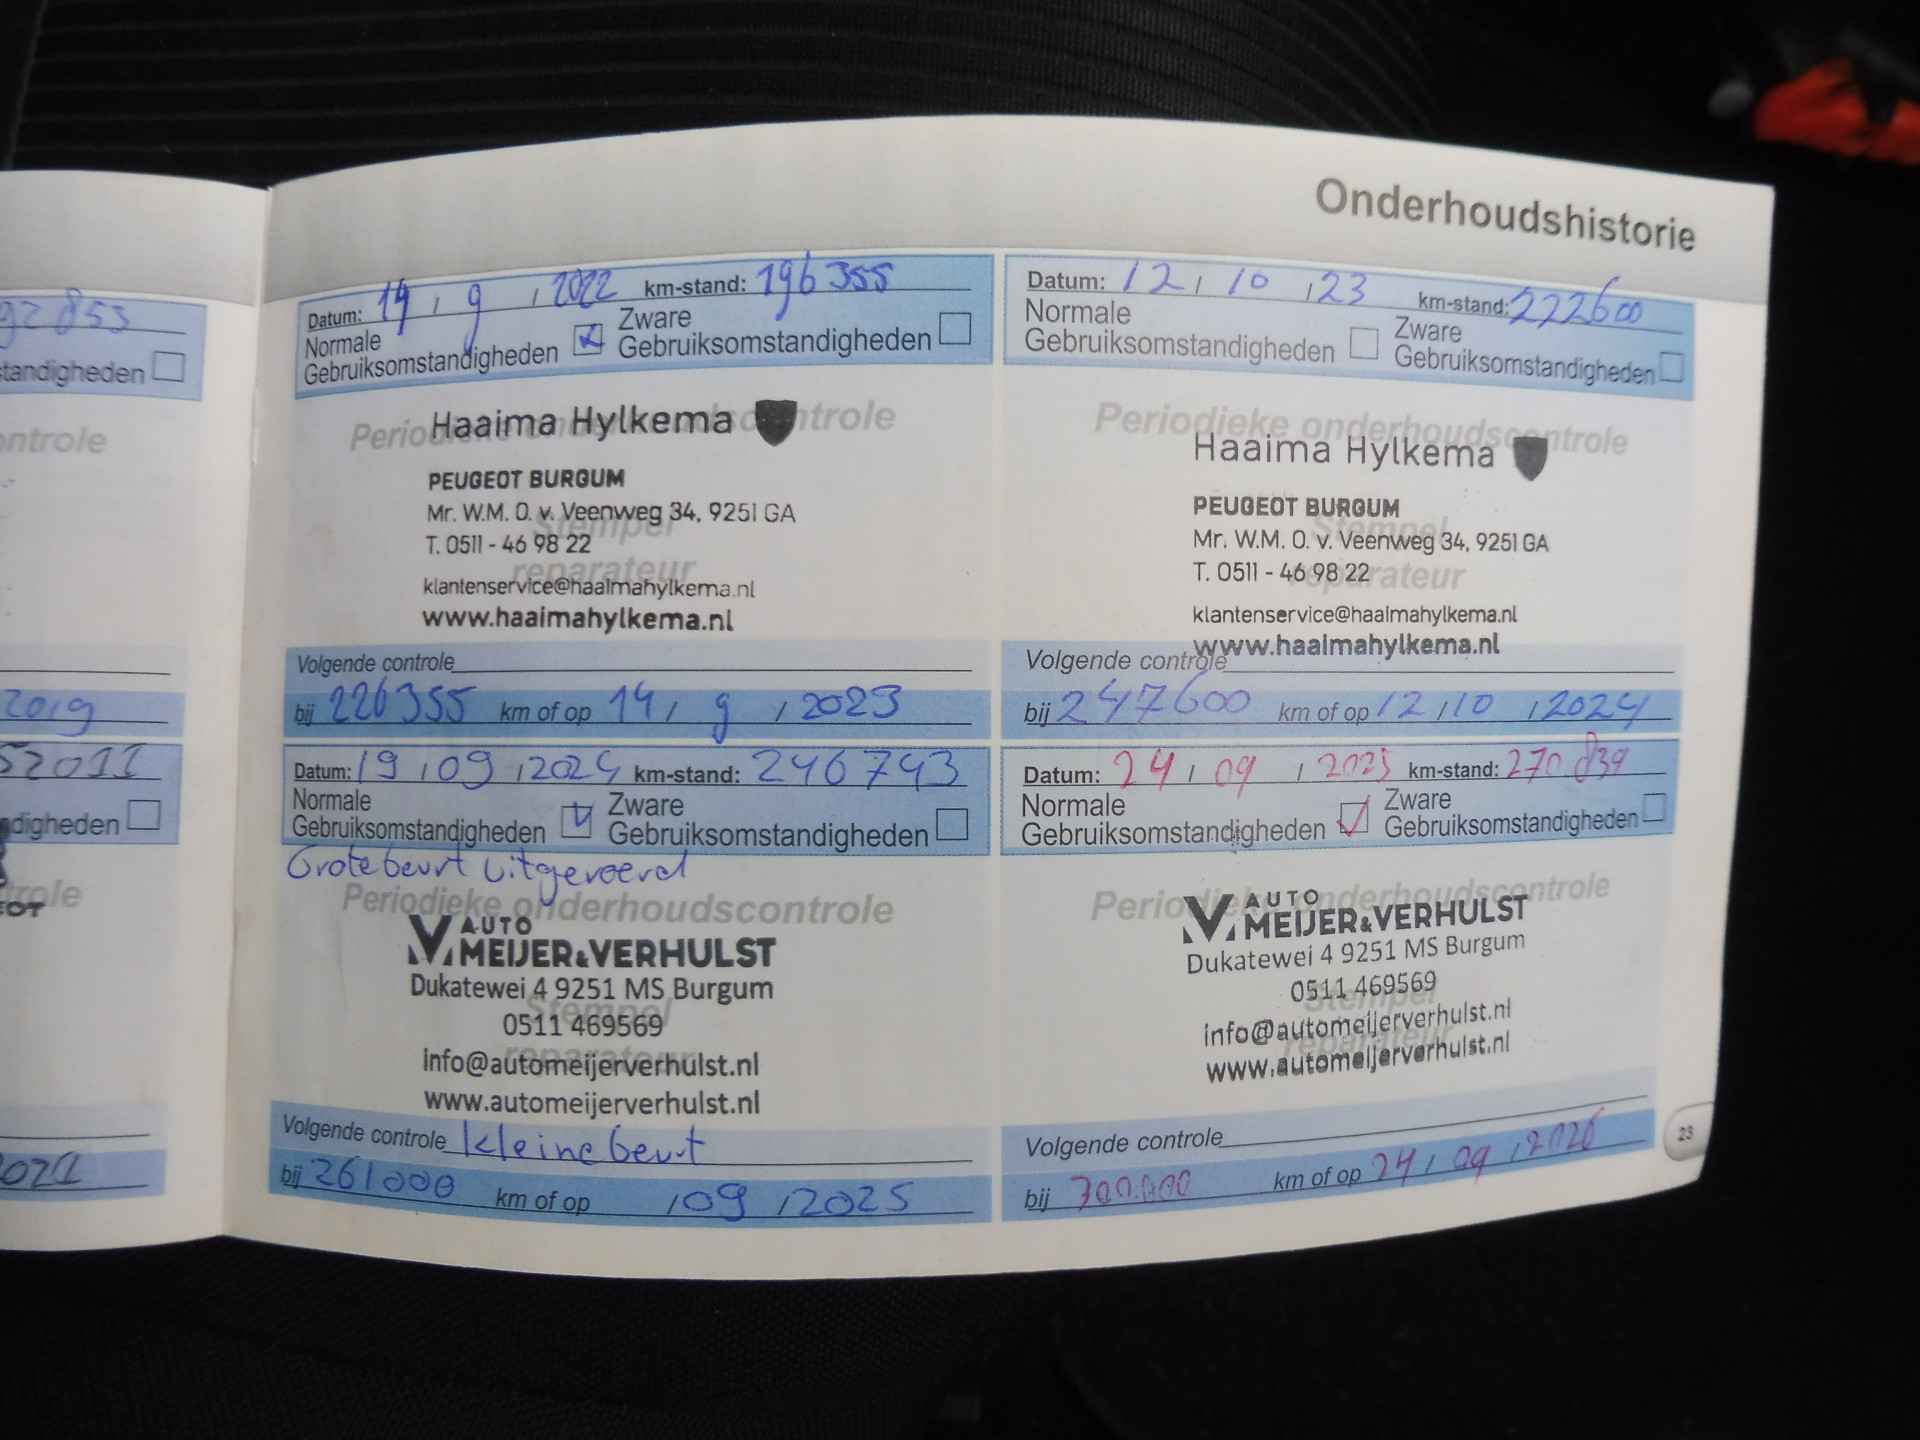 Onderhoudshistorie
853
standigheden
ontrole
2019
52011
digheden
trole
EOT
2021
Datum: 14 / 9 / 2022 km-stand: 196355
Normale
Gebruiksomstandigheden
Zware
Gebruiksomstandigheden
Periodieke onderhoudscontrole
Haaima Hylkema
PEUGEOT BURGUM
Mr. W.M. O. v. Veenweg 34, 9251 GA
Stempel
T. 0511 - 46 98 22
reparateur
klantenservice@haaimahylkema.nl
www.haaimahylkema.nl
Volgende controle
bij 226355 km of op 14 / 9 / 2023
Datum: 12 / 10 / 23 km-stand: 222600
Normale
Gebruiksomstandigheden
Zware
Gebruiksomstandigheden
Periodieke onderhoudscontrole
Haaima Hylkema
PEUGEOT BURGUM
Stempel
Mr. W.M. O. v. Veenweg 34, 9251 GA
T. 0511 - 46 98 22
reparateur
klantenservice@haaimahylkema.nl
www.haaimahylkema.nl
Volgende controle
bij 247600 km of op 12 / 10 / 2024
Datum: 19 / 09 / 2024 km-stand: 246743
Normale
Gebruiksomstandigheden
Zware
Gebruiksomstandigheden
Grote beurt uitgevoerd
Periodieke onderhoudscontrole
AUTO
MEIJER&VERHULST
Dukatewei 4 9251 MS Burgum
Stempel
0511 469569
reparateur
info@automeijerverhulst.nl
www.automeijerverhulst.nl
Volgende controle kleine beurt
bij 261000 km of op / 09 / 2025
Datum: 24 / 09 / 2025 km-stand: 270.839
Normale
Gebruiksomstandigheden
Zware
Gebruiksomstandigheden
Periodieke onderhoudscontrole
AUTO
MEIJER&VERHULST
Dukatewei 4 9251 MS Burgum
0511 469569
Stempel
info@automeijerverhulst.nl
reparateur
www.automeijerverhulst.nl
Volgende controle
bij 300.000 km of op 24 / 09 / 2026
23